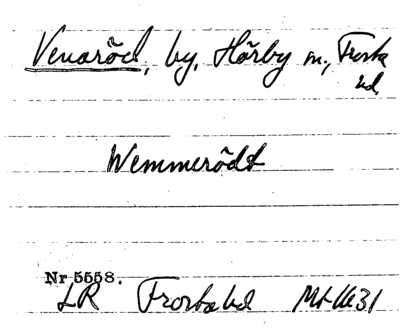 Venaröd, by, Hörby sn., Frosta
hd.
Wemmerödt
Nr 5558.
LR Frosta hd